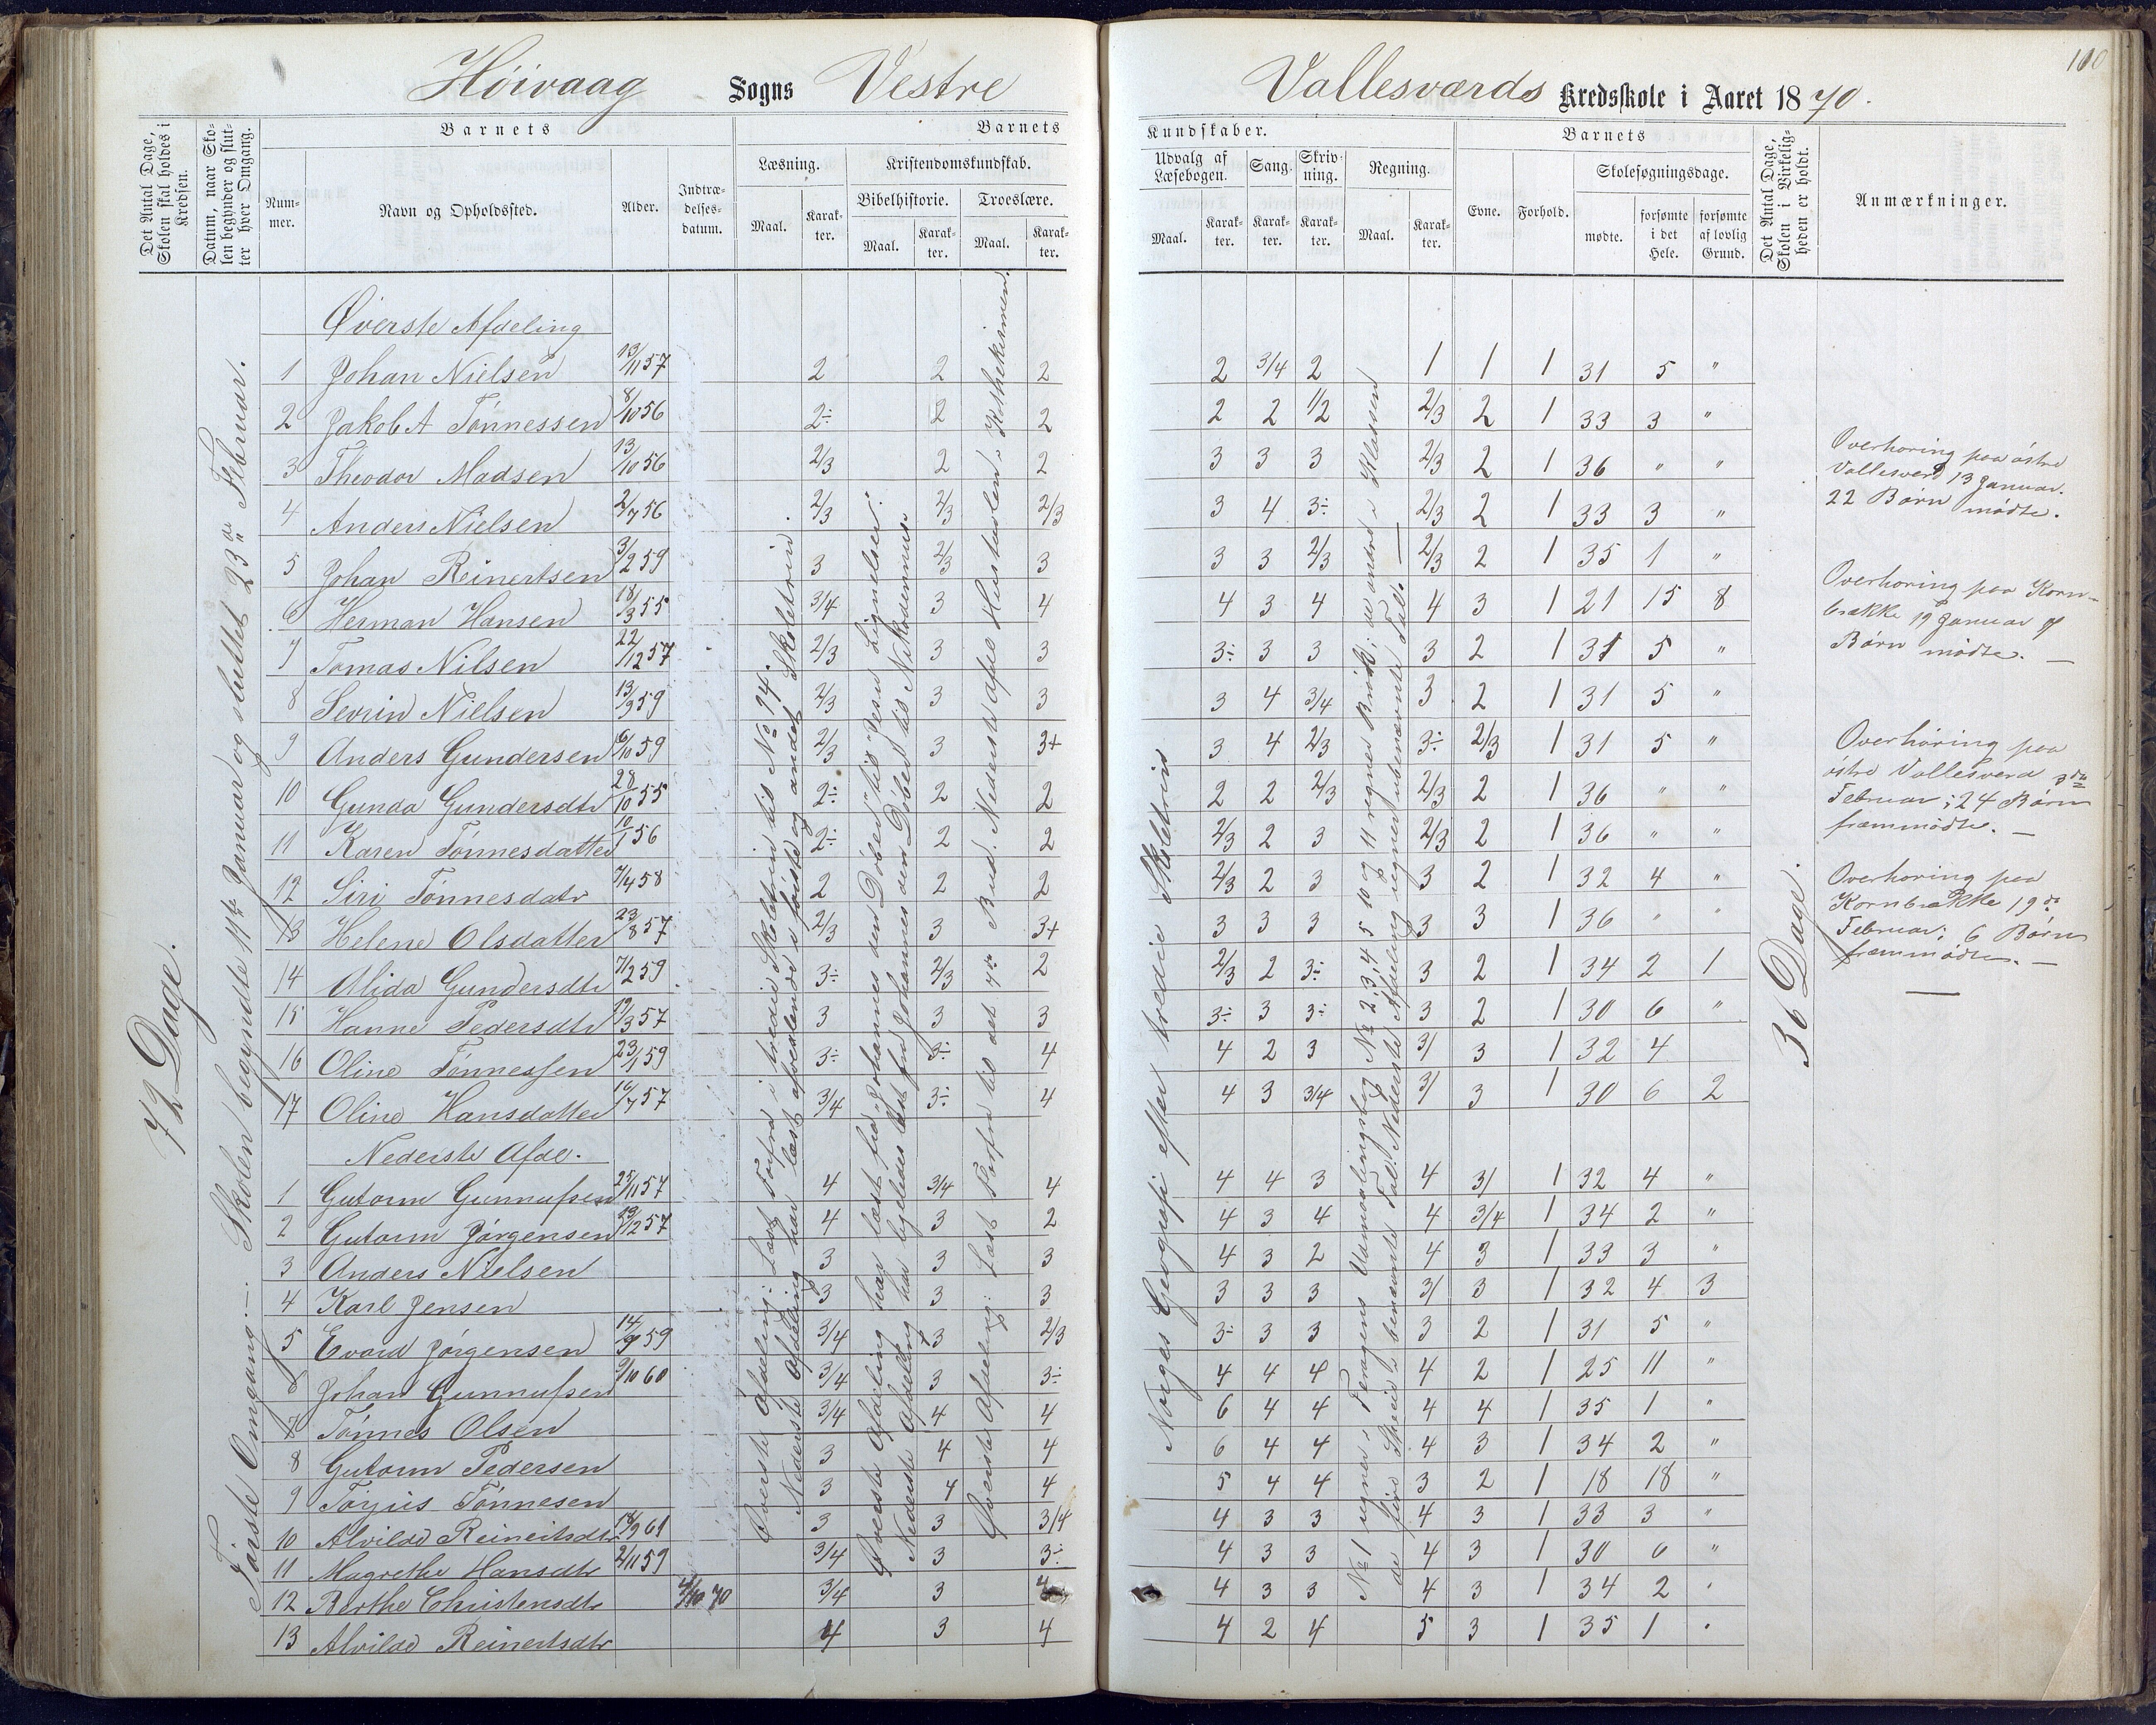 110
Høivaag Sogns Vestre Vallesværds Kredsskole i Aaret 1870.
Det Antal Dage, Skolen skal holdes i Kredsen.
Datum, naar Skolen begynder og slutter hver Omgang.
Barnets
Nummer.
Navn og Opholdssted.
Alder.
Indtrædelsesdatum.
Barnets Kundskaber.
Læsning.
Maal.
Karakter.
Kristendomskundskab.
Bibelhistorie.
Maal.
Karakter.
Troeslære.
Maal.
Karakter.
Udvalg af Læsebogen.
Maal.
Karakter.
Sang.
Karakter.
Skrivning.
Karakter.
Regning.
Maal.
Karakter.
Barnets
Evne.
Forhold.
Skolesøgningsdage.
mødte.
forsømte i det Hele.
forsømte af lovlig Grund.
Det Antal Dage, Skolen i Virkeligheden er holdt.
Anmærkninger.
72 Dage.
Første Omgang:— Skolen begyndte 11te Januar og sluttet 23de Februar.
Øverste Afdeling
1 Johan Nielsen 13/11 57 2 2 2 2 3/4 2 1 1 1 31 5 "
2 Jakob A Tønnessen 8/10 56 2÷ 2 2 2 2 1/2 2/3 2 1 33 3 "
3 Theodor Madsen 13/10 56 2/3 2 2 3 3 3 2/3 2 1 36 " "
4 Anders Nielsen 2/7 56 2/3 2/3 2/3 3 4 3÷ 2/3 2 1 33 3 "
5 Johan Reinertsen 3/2 59 3 2/3 3 3 3 2/3 2/3 2 1 35 1 "
6 Herman Hansen 18/3 55 3/4 3 4 4 3 4 4 3 1 21 15 8
7 Tomas Nilsen 22/12 57 2/3 3 3 3÷ 3 3 3 2 1 31 5 "
8 Sevrin Nielsen 13/9 59 2/3 3 3 3 4 3/4 3 2 1 31 5 "
9 Anders Gundersen 16/10 59 2/3 3 3+ 3 4 2/3 3÷ 2/3 1 31 5 "
10 Gunda Gundersdtr 28/10 55 2÷ 2 2 2 2 2/3 2/3 2 1 36 " "
11 Karen Tønnesdatter 10/1 56 2÷ 2 2 2/3 2 3 2/3 2 1 36 " "
12 Siri Tønnesdatr 7/4 58 2 2 2 2/3 2 3 3 2 1 32 4 "
13 Helene Olsdatter 23/8 57 2/3 3 3+ 3 3 3 3 3 1 36 " "
14 Alida Gundersdtr 7/2 59 3÷ 2/3 2 2/3 2 3÷ 3 2 1 34 2 1
15 Hanne Pedersdtr 19/3 57 3 3 3 3÷ 3 3÷ 3 2 1 30 6 "
16 Oline Tønnessen 23/1 59 3÷ 3÷ 4 4 2 3 3/ 3 1 32 4
17 Oline Hansdatter 16/7 57 3/4 3÷ 4 4 3 3/4 3/ 3 1 30 6 2
Nederste Afdl.
1 Gutorm Gunnufsen 25/11 57 4 3/4 4 4 4 3 4 3/ 1 32 4 "
2 Gutorm Jørgensen 19/12 57 4 3 2 4 3 4 4 3/4 1 34 2 "
3 Anders Nielsen 3 3 3 4 3 2 4 3 1 33 3 "
4 Karl Jensen 3 3 3 3 3 3 3/ 3 1 32 4 3
5 Evard Jørgensen 14/9 59 3/4 3 2/3 3÷ 3 3 3 2 1 31 5 "
6 Johan Gunnufsen 9/10 60 3/4 3 3÷ 4 4 4 4 2 1 25 11 "
7 Tønnes Olsen 3/4 4 4 6 4 4 4 4 1 35 1 "
8 Gutorm Pedersen 3 4 4 6 4 4 4 3 1 34 2 "
9 Torjus Tønnesen 3 4 4 5 4 4 3 2 1 18 18 "
10 Alvilde Reinertsdtr 18/9 61 3 3 3/4 4 3 3 4 3 1 33 3 "
11 Magrethe Hansdtr 2/11 59 3/4 3 3÷ 4 3 3 4 3 1 30 6 "
12 Berthe Christensdtr 4/10 70 3/4 3 4 4 3 3 4 3 1 34 2 "
13 Alvilde Reinertsdtr 4 3 4 4 2 4 5 3 1 35 1 "
Øverste Afdeling: Læst Forfra i tredie Skoletrin til No 74.
Nederste Afdeling har læst afvexlende i første og andet Skoletrin
Øverste Afdeling har læst fra "Johannes den Døber" til "Jesu Lignelser".
Nederste Afdeling har ligeledes læst fra Johannes den Døber til Nikodemus.
Øverste Afdeling: Læst Forfra til det 7de Bud. Nederste Afdl Hustavlen i Kathekismen.
Norges Geografi efter tredie Skoletrin
No 1 regner i Udmaalingsbog No 2, 3, 4 5 10 og 11 regner Brøk; de andre i Klassen
de fire Specier i benævnte Tal. Nederste Afdeling regner ubenævnte Tal. —
36 Dage.
Overhøring paa østre
Vallesverd 13 Januar.
22 Børn mødte.
Overhøring paa Korn-
brække 19 Januar 9
Børn mødte. —
Overhøring paa
østre Vallesverd 3die
Februar; 24 Børn
fremmødte. —
Overhøring paa
Kornbrække 19de
Februar; 6 Børn
fremmødte. —